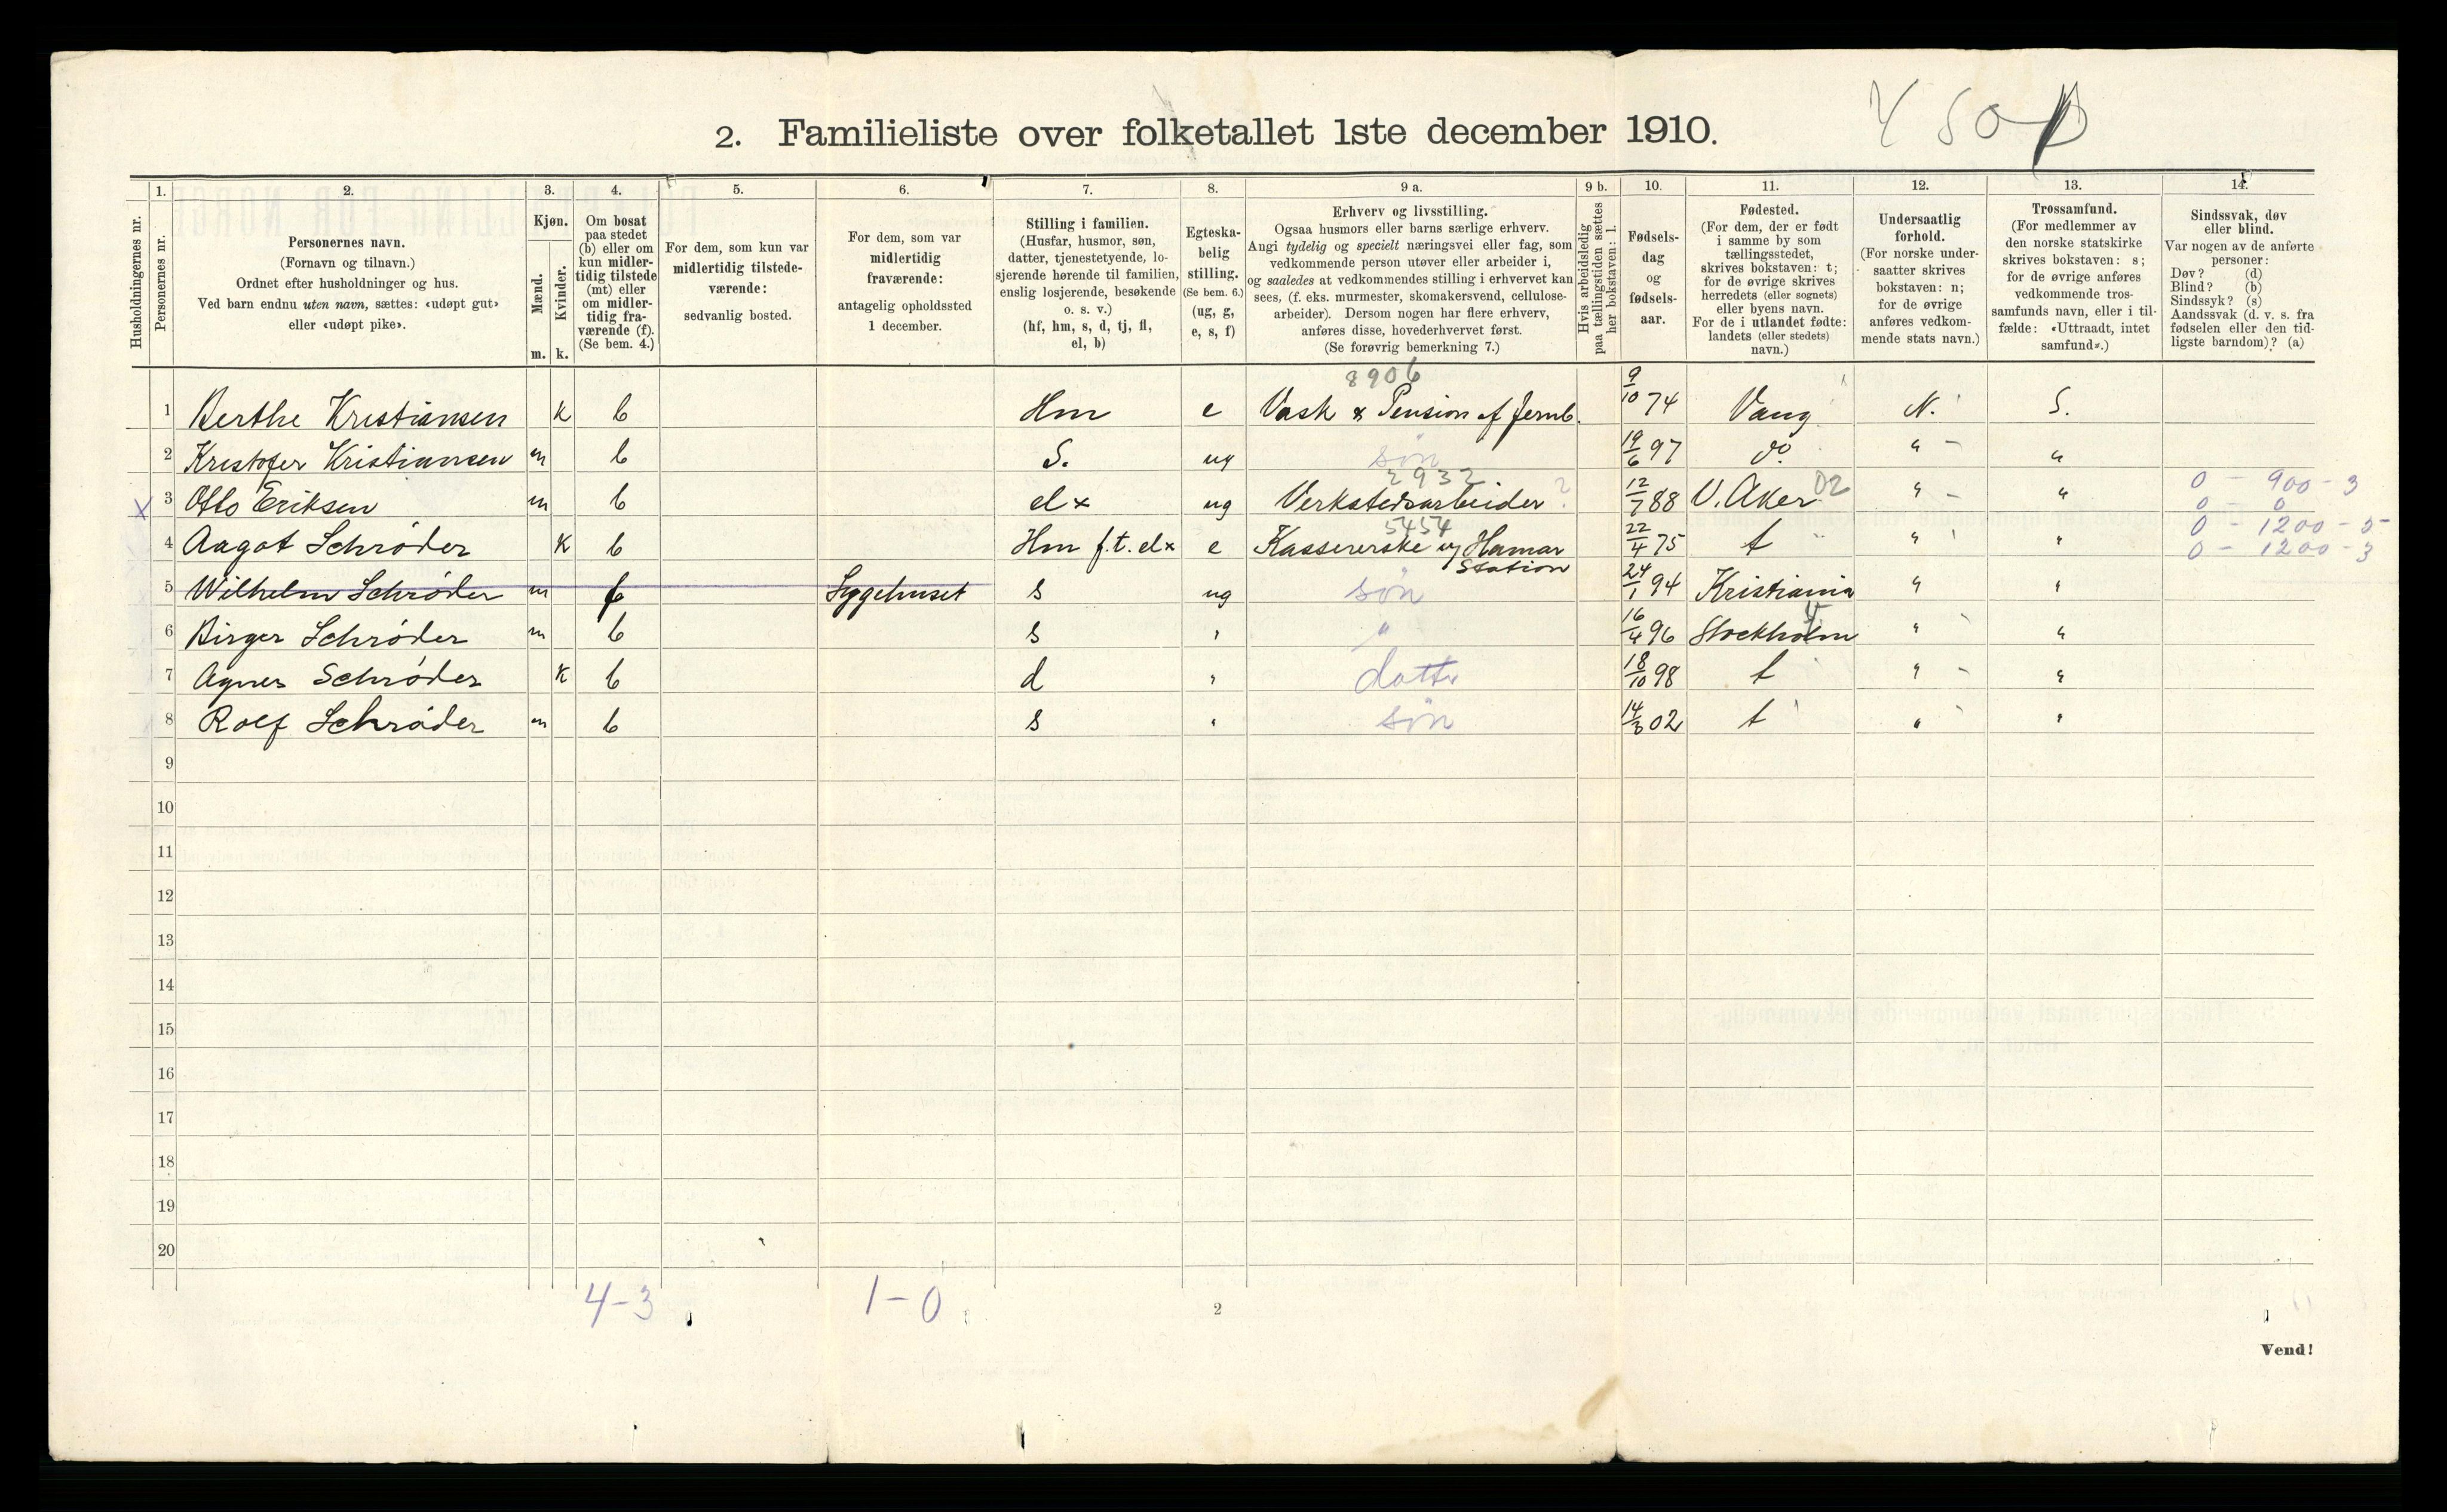 450
2. Familieliste over folketallet 1ste december 1910.
1. 2. 3. 4. 5. 6. 7. 8. 9 a. 9 b. 10. 11. 12. 13. 14.
Husholdningernes nr.
Personernes nr.
Personernes navn.
(Fornavn og tilnavn.)
Ordnet efter husholdninger og hus.
Ved barn endnu uten navn, sættes: «udøpt gut»
eller «udøpt pike».
Kjøn.
Mænd.
Kvinder.
m. k.
Om bosat
paa stedet
(b) eller om
kun midler-
tidig tilstede
(mt) eller
om midler-
tidig fra-
værende (f).
(Se bem. 4.)
For dem, som kun var
midlertidig tilstede-
værende:
sedvanlig bosted.
For dem, som var
midlertidig
fraværende:
antagelig opholdssted
1 december.
Stilling i familien.
(Husfar, husmor, søn,
datter, tjenestetyende, lo-
sjerende hørende til familien,
enslig losjerende, besøkende
o. s. v.)
(hf, hm, s, d, tj, fl,
el, b)
Egteska-
belig
stilling.
(Se bem. 6.)
(ug, g,
e, s, f)
Erhverv og livsstilling.
Ogsaa husmors eller barns særlige erhverv.
Angi tydelig og specielt næringsvei eller fag, som
vedkommende person utøver eller arbeider i,
og saaledes at vedkommendes stilling i erhvervet kan
sees, (f. eks. murmester, skomakersvend, cellulose-
arbeider). Dersom nogen har flere erhverv,
anføres disse, hovederhvervet først.
(Se forøvrig bemerkning 7.)
Hvis arbeidsledig
paa tællingstiden sættes
her bokstaven: l.
Fødsels-
dag
og
fødsels-
aar.
Fødested.
(For dem, der er født
i samme by som
tællingsstedet,
skrives bokstaven: t;
for de øvrige skrives
herredets (eller sognets)
eller byens navn.
For de i utlandet fødte:
landets (eller stedets)
navn.)
Undersaatlig
forhold.
(For norske under-
saatter skrives
bokstaven: n;
for de øvrige
anføres vedkom-
mende stats navn.)
Trossamfund.
(For medlemmer av
den norske statskirke
skrives bokstaven: s;
for de øvrige anføres
vedkommende tros-
samfunds navn, eller i til-
fælde: «Uttraadt, intet
samfund».)
Sindssvak, døv
eller blind.
Var nogen av de anførte
personer:
Døv? (d)
Blind? (b)
Sindssyk? (s)
Aandssvak (d. v. s. fra
fødselen eller den tid-
ligste barndom)? (a)
8906
1 Berthe Kristiansen k b Hm e Vask & Pension af Jernb. 9/10 74 Vang N. S.
2 Kristofer Kristiansen m b S. ug søn 19/6 97 do " - "
2932 0 - 900 - 3
x 3 Otto Eriksen m b el x ug Verkstedsarbeider ? 12/7 88 V. Aker 02 " - " 0 - 0
5454 0 - 1200 - 5
4 Aagot Schrøder k b Hm f.t. el x e Kassererske v/ Hamar Station 22/4 75 t " " 0 - 1200 - 3
5 Wilhelm Schrøder m f Sygehuset s ug søn 24/1 94 Kristiania " "
6 Birger Schrøder m b s " " 16/4 96 Stockholm " "
7 Agnes Schrøder k b d " datter 18/10 98 t " - "
8 Rolf Schrøder m b s " søn 14/3 02 t " "
9
10
11
12
13
14
15
16
17
18
19
20
4-3 1-0
2
Vend!